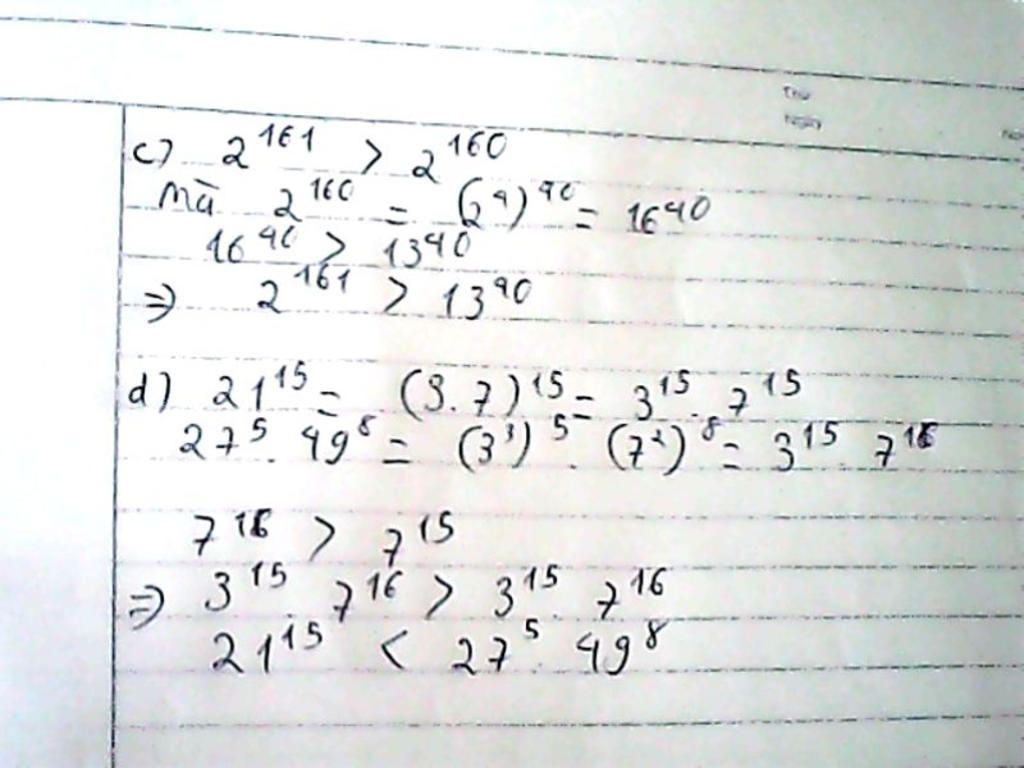 Thứ
Ngày
c) 2^161 > 2^160
Mà 2^160 = (2^4)^40 = 16^40
16^40 > 13^40
⇒ 2^161 > 13^40
d) 21^15 = (3.7)^15 = 3^15 . 7^15
27^5 . 49^8 = (3^3)^5 . (7^2)^8 = 3^15 . 7^16
7^16 > 7^15
⇒ 3^15 . 7^16 > 3^15 . 7^16
21^15 < 27^5 . 49^8